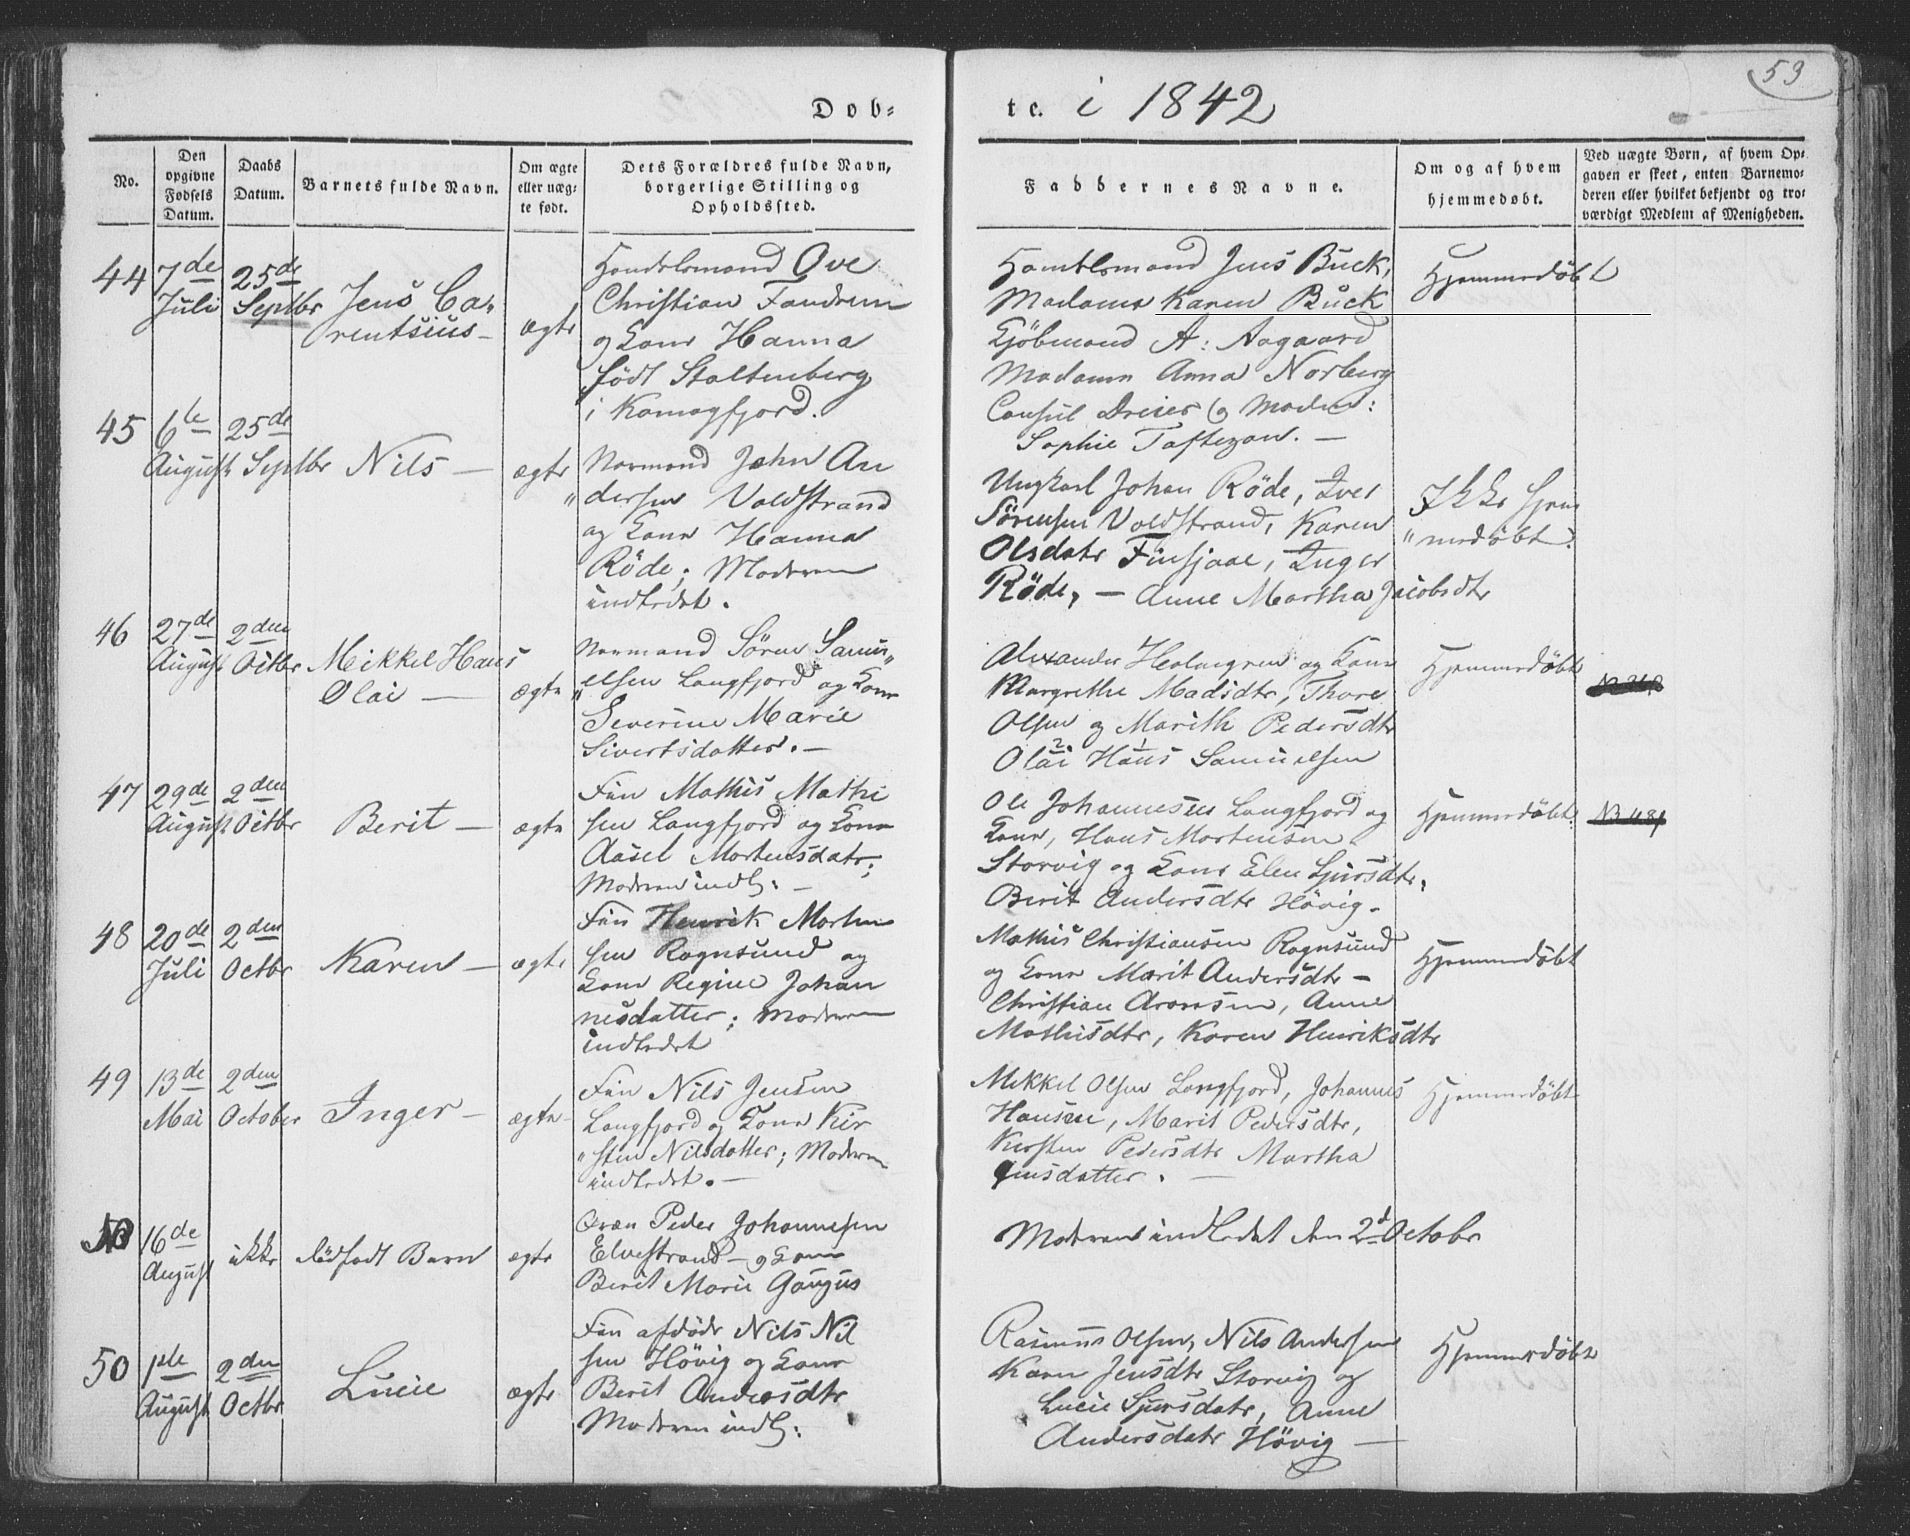 53
Døb-
te. i 1842
No.
Den opgivne Fødsels Datum.
Daabs Datum.
Barnets fulde Navn.
Om ægte eller uæg-te født.
Dets Forældres fulde Navn, borgerlige Stilling og Opholdssted.
Faddernes Navne.
Om og af hvem hjemmedøbt.
Ved uægte Børn, af hvem Op-gaven er skeet, enten Barnemo-deren eller hvilket bekjendt og tro-værdigt Medlem af Menigheden.
44
7de Juli
25de Septbr
Jens Ca-
rentsius -
ægte
Handelsmand Ove
Christian Fandrem
og Kone Hanna
født Stoltenberg
i Komagfjord.
Handelsmand Jens Buck,
Madame Karen Buck
Kjöbmand A: Aagaard
Madame Anna Norberg
Consul Dreier og Madm:
Sophie Taftezon. -
Hjemmedøbt
45
6te August
25de Septbr
Nils -
ægte
Normand John An
dersen Voldstrand
og Kone Hanna
Røde; Moderen
indledet.
Ungkarl Johan Røde, Iver
Sörensen Voldstrand, Karen
Olsdatr Finsjaae, Inger
Røde, - Anne Martha Jacobsdtr
Ikke hjem
"medøbt.
46
27de August
2den Octbr
Mikkel Hans
Olai -
ægte
Normand Sören Samu,,
"elsen Langfjord og Kone
Severine Marie
Sivertsdatter. -
Alexander Holmgren og Kone
Margrethe Madsdtr, Thore
Olsen og Marith Pedersdtr
Olai Hans Samuelsen
Hjemmedøbt
47
29de August
2den Octbr
Berit -
ægte
Fin Mathis Mathi
sen Langfjord og Kone
Aasel Mortensdatr;
Moderen indl: -
Ole Johannesen Langfjord og
Kone, Hans Mortensen
Storvig og Kone Elen Sjursdtr,
Berit Andersdtr Hövig.
Hjemmedøbt:
48
20de Juli
2den Octbr
Karen -
ægte
Fin Henrik Morten
sen Rognsund og
Kone Regine Johan
nesdatter; Moderen
indledet
Mathis Christiansen Rognsund
og Kone Marit Andersdtr -
Christian Aronsen, Anne
Mathisdtr, Karen Henriksdtr
Hjemmedøbt
49
13de Mai
2den October
Inger -
ægte -
Fin Nils Jensen
Langfjord og Kone Kir
"sten Nilsdatter; Moderen
indledet. -
Mikkel Olsen Langfjord, Johannes
Hansen, Marit Pedersdtr,
Kirsten Pedersdtr Martha
Jensdatter. -
Hjemmedøbt
16de August
ikke
dødfødt Barn
ægte
Qvæn Peder Johannesen
Elvestrand - og Kone
Berit Marie Göugus
Moderen indledet den 2d October
50
1ste August
2den Octbr
Lucie
ægte
Fin afdöde Nils Nil
sen Hövig og Kone
Berit Andersdtr
Moderen indl:
Rasmus Olsen, Nils Andersen
Karen Jensdtr Storvig og
Lucie Sjursdatr, Anne
Andersdatr Hövig -
Hjemmedøbt